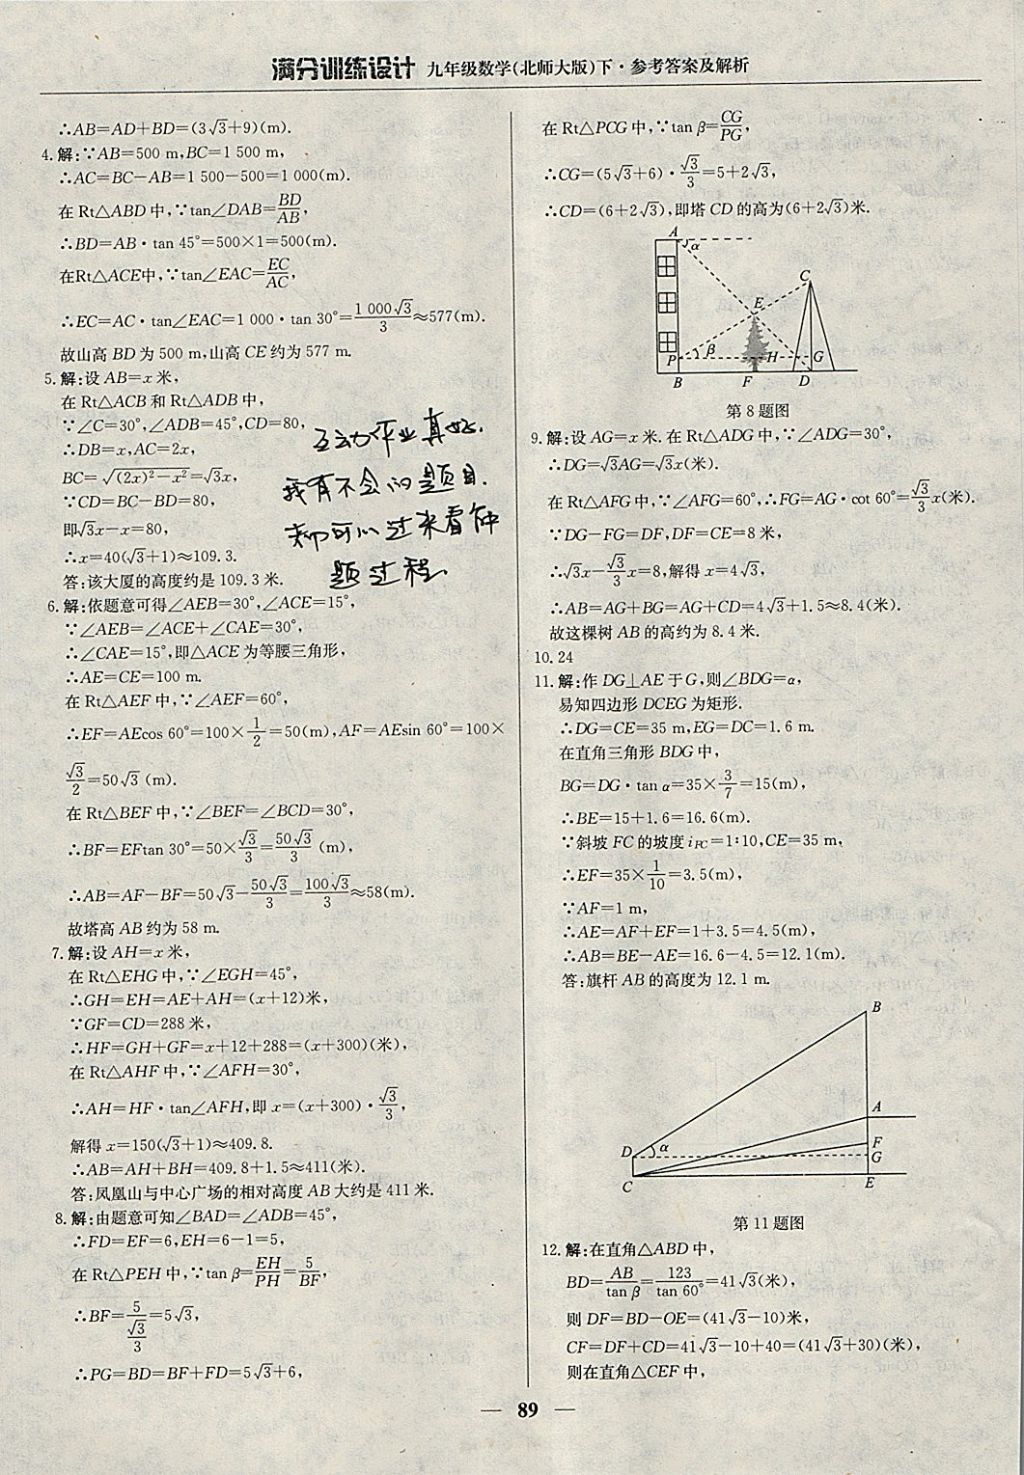 满分训练设计 九年级数学(北师大版)下·参考答案及解析
∴AB=AD+BD=(3√3+9)(m).
4.解:∵AB=500 m,BC=1 500 m,
∴AC=BC-AB=1 500-500=1 000(m).
在 Rt△ABD 中,∵tan∠DAB=BD/AB,
∴BD=AB·tan 45°=500×1=500(m).
在Rt△ACE中,∵tan∠EAC=EC/AC,
∴EC=AC·tan∠EAC=1 000·tan 30°=1 000√3/3≈577(m).
故山高 BD 为 500 m,山高 CE 约为 577 m.
5.解:设 AB=x 米,
在 Rt△ACB 和 Rt△ADB 中,
∵∠C=30°,∠ADB=45°,CD=80,
∴DB=x,AC=2x,
BC=√((2x)²-x²)=√3x,
∵CD=BC-BD=80,
即√3x-x=80,
∴x=40(√3+1)≈109.3.
答:该大厦的高度约是 109.3 米.
互动作业真好.
我有不会的题目.
都可以过来看解
题过程.
6.解:依题意可得∠AEB=30°,∠ACE=15°,
∵∠AEB=∠ACE+∠CAE=30°,
∴∠CAE=15°,即△ACE 为等腰三角形,
∴AE=CE=100 m.
在 Rt△AEF 中,∵∠AEF=60°,
∴EF=AEcos 60°=100×1/2=50(m),AF=AEsin 60°=100×
√3/2=50√3 (m).
在 Rt△BEF 中,∵∠BEF=∠BCD=30°,
∴BF=EFtan 30°=50×√3/3=50√3/3 (m),
∴AB=AF-BF=50√3-50√3/3=100√3/3≈58(m).
故塔高 AB 约为 58 m.
7.解:设 AH=x 米,
在 Rt△EHG 中,∵∠EGH=45°,
∴GH=EH=AE+AH=(x+12)米,
∵GF=CD=288 米,
∴HF=GH+GF=x+12+288=(x+300)(米),
在 Rt△AHF 中,∵∠AFH=30°,
∴AH=HF·tan∠AFH,即 x=(x+300)·√3/3,
解得 x=150(√3+1)≈409.8.
∴AB=AH+BH=409.8+1.5≈411(米).
答:凤凰山与中心广场的相对高度 AB 大约是 411 米.
8.解:由题意可知∠BAD=∠ADB=45°,
∴FD=EF=6,EH=6-1=5,
在 Rt△PEH 中,∵tan β=EH/PH=5/BF,
∴BF=5/(√3/3)=5√3,
∴PG=BD=BF+FD=5√3+6,
在 Rt△PCG 中,∵tan β=CG/PG,
∴CG=(5√3+6)·√3/3=5+2√3,
∴CD=(6+2√3),即塔 CD 的高为(6+2√3)米.
A
α
C
E
P
β
H
G
B
F
D
第 8 题图
9.解:设 AG=x 米.在 Rt△ADG 中,∵∠ADG=30°,
∴DG=√3AG=√3x(米).
在 Rt△AFG 中,∵∠AFG=60°,∴FG=AG·cot 60°=√3/3x(米).
∵DG-FG=DF,DF=CE=8 米,
∴√3x-√3/3x=8,解得 x=4√3,
∴AB=AG+BG=AG+CD=4√3+1.5≈8.4(米).
故这棵树 AB 的高约为 8.4 米.
10.24
11.解:作 DG⊥AE 于 G,则∠BDG=α,
易知四边形 DCEG 为矩形.
∴DG=CE=35 m,EG=DC=1.6 m.
在直角三角形 BDG 中,
BG=DG·tan α=35×3/7=15(m),
∴BE=15+1.6=16.6(m).
∵斜坡 FC 的坡度 iFC=1:10,CE=35 m,
∴EF=35×1/10=3.5(m),
∵AF=1 m,
∴AE=AF+EF=1+3.5=4.5(m),
∴AB=BE-AE=16.6-4.5=12.1(m).
答:旗杆 AB 的高度为 12.1 m.
B
A
D
α
F
G
C
E
第 11 题图
12.解:在直角△ABD 中,
BD=AB/tan β=123/tan 60°=41√3(米),
则 DF=BD-OE=(41√3-10)米,
CF=DF+CD=41√3-10+40=(41√3+30)(米),
则在直角△CEF 中,
— 89 —